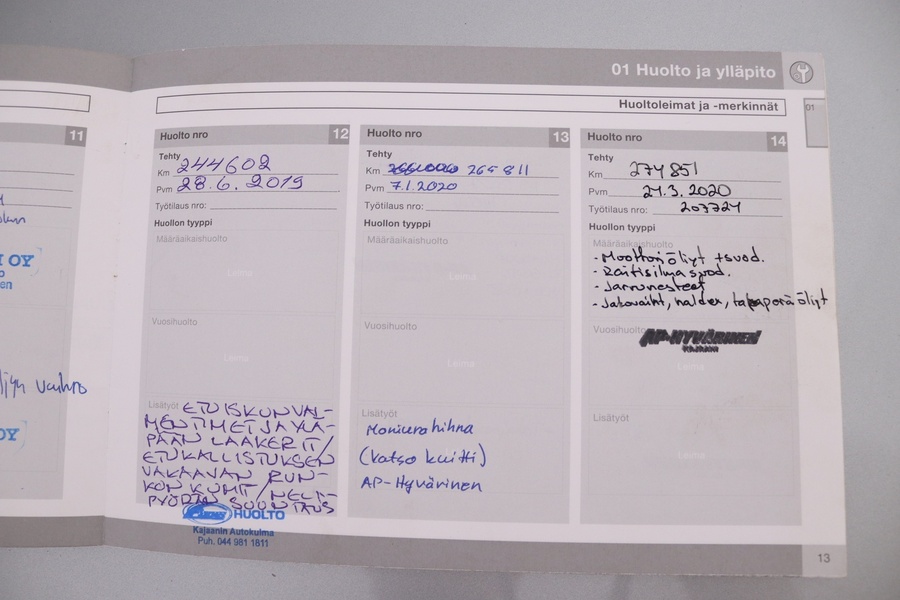 01 Huolto ja ylläpito
Huoltoleimat ja -merkinnät
01
11
OY
en
vaihto
OY
Huolto nro 12
Tehty
Km 244602
Pvm 28.6.2019
Työtilaus nro:
Huollon tyyppi
Määräaikaishuolto
Leima
Vuosihuolto
Leima
Lisätyöt ETUISKUNVAI-
MENTIMET JA YLÄ-
PÄÄN LAAKERIT/
ETUKALLISTUKSEN
VAKAAJAN RUN-
KON KUMIT/NELI-
PYÖRÄN SUUNTAUS
HUOLTO
Kajaanin Autokulma
Puh. 044 981 1811
Huolto nro 13
Tehty
Km 265811
Pvm 7.1.2020
Työtilaus nro:
Huollon tyyppi
Määräaikaishuolto
Leima
Vuosihuolto
Leima
Lisätyöt
Moniurahihna
(katso kuitti)
AP-Hyvärinen
Huolto nro 14
Tehty
Km 274851
Pvm 21.3.2020
Työtilaus nro: 203721
Huollon tyyppi
Määräaikaishuolto
- Moottoriöljyt +suod.
- Raitisilma suod.
- Jarrunesteet
- Jakovaiht, haldex, takaperä öljyt
Vuosihuolto
AP-HYVÄRINEN
KAJAANI
Leima
Lisätyöt
Leima
13